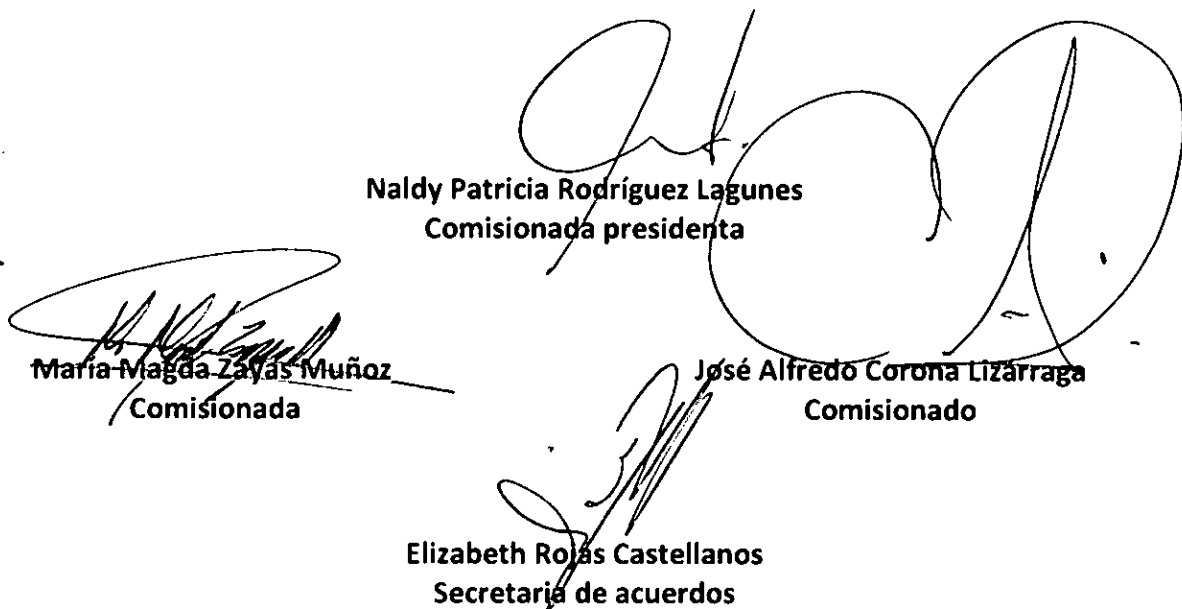 Naldy Patricia Rodríguez Lagunes
Comisionada presidenta
María Magda Zayas Muñoz
Comisionada
José Alfredo Corona Lizárraga
Comisionado
Elizabeth Rojas Castellanos
Secretaria de acuerdos